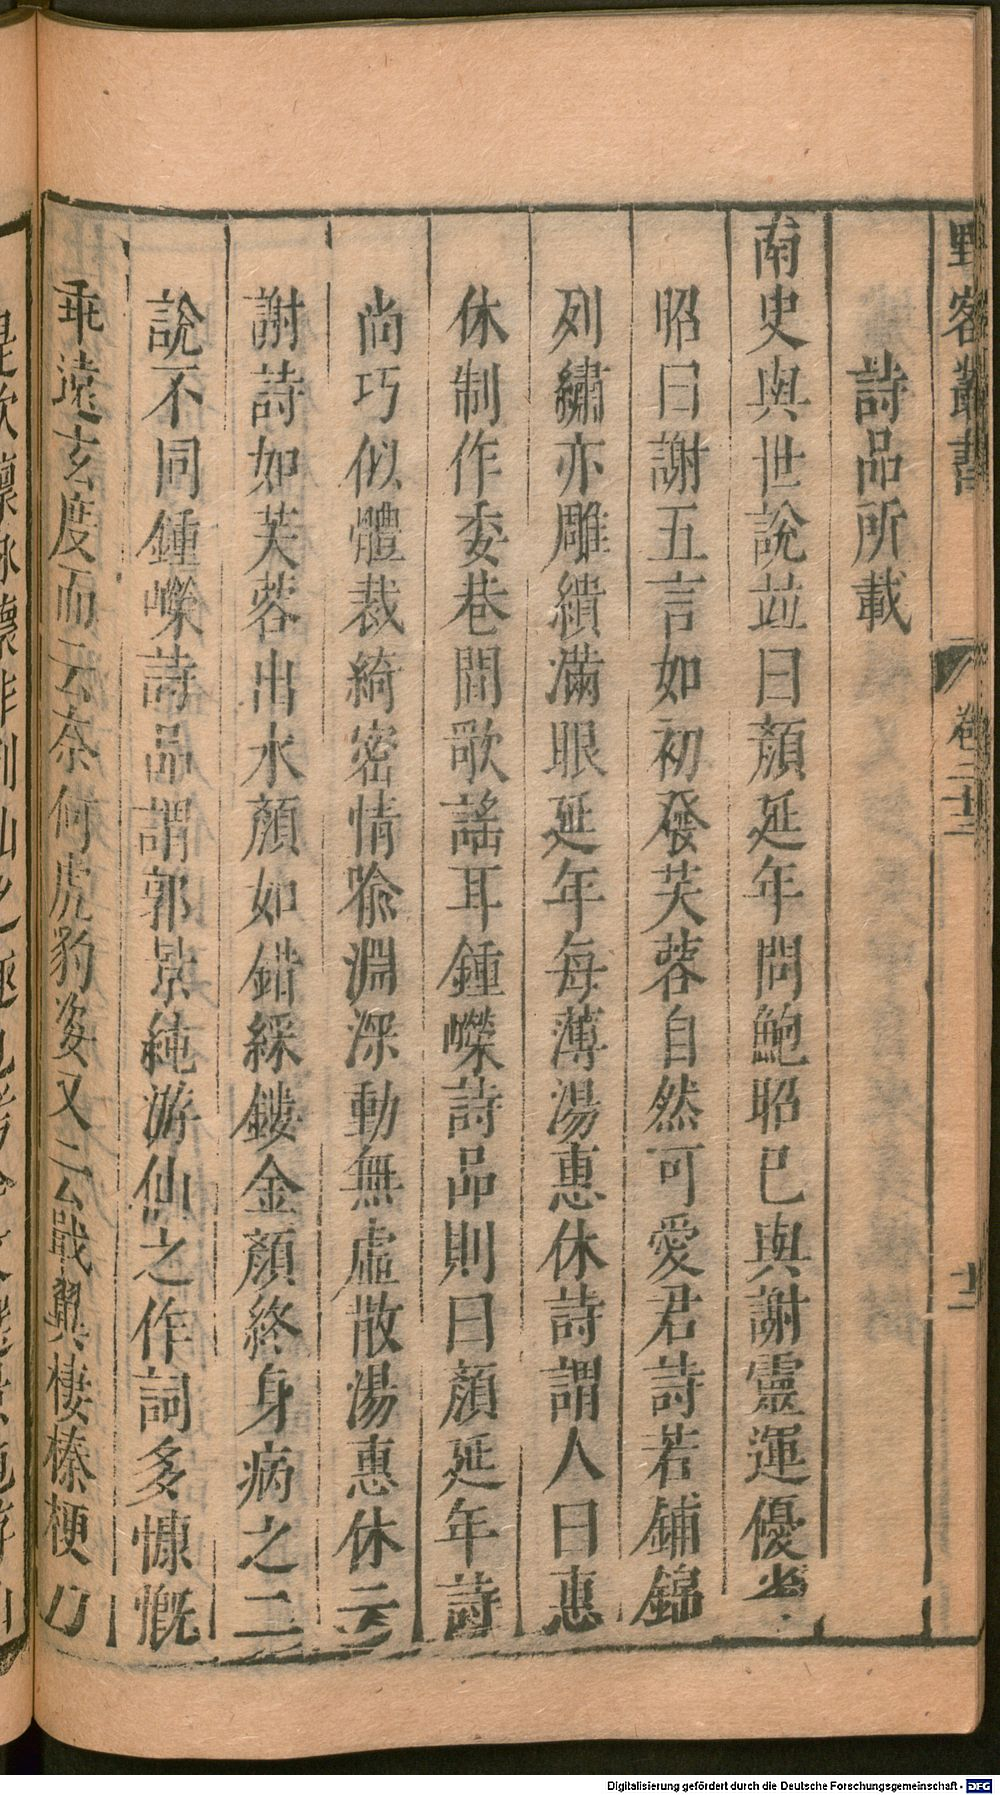 野客叢書
卷二十二
十二
詩品所載
南史與世說並曰顏延年問鮑昭已與謝靈運優劣
昭曰謝五言如初發芙蓉自然可愛君詩若鋪錦
列繡亦雕繢滿眼延年每薄湯惠休詩謂人曰惠
休制作委巷間歌謠耳鍾嶸詩品則曰顏延年詩
尚巧似體裁綺密情喻淵深動無虛散湯惠休云
謝詩如芙蓉出水顏如錯綵鏤金顏終身病之二
說不同鍾嶸詩品謂郭景純游仙之作詞多慷慨
乖遠玄度而云奈何虎豹姿又云戢翼棲榛梗乃
Digitalisierung gefördert durch die Deutsche Forschungsgemeinschaft - DFG